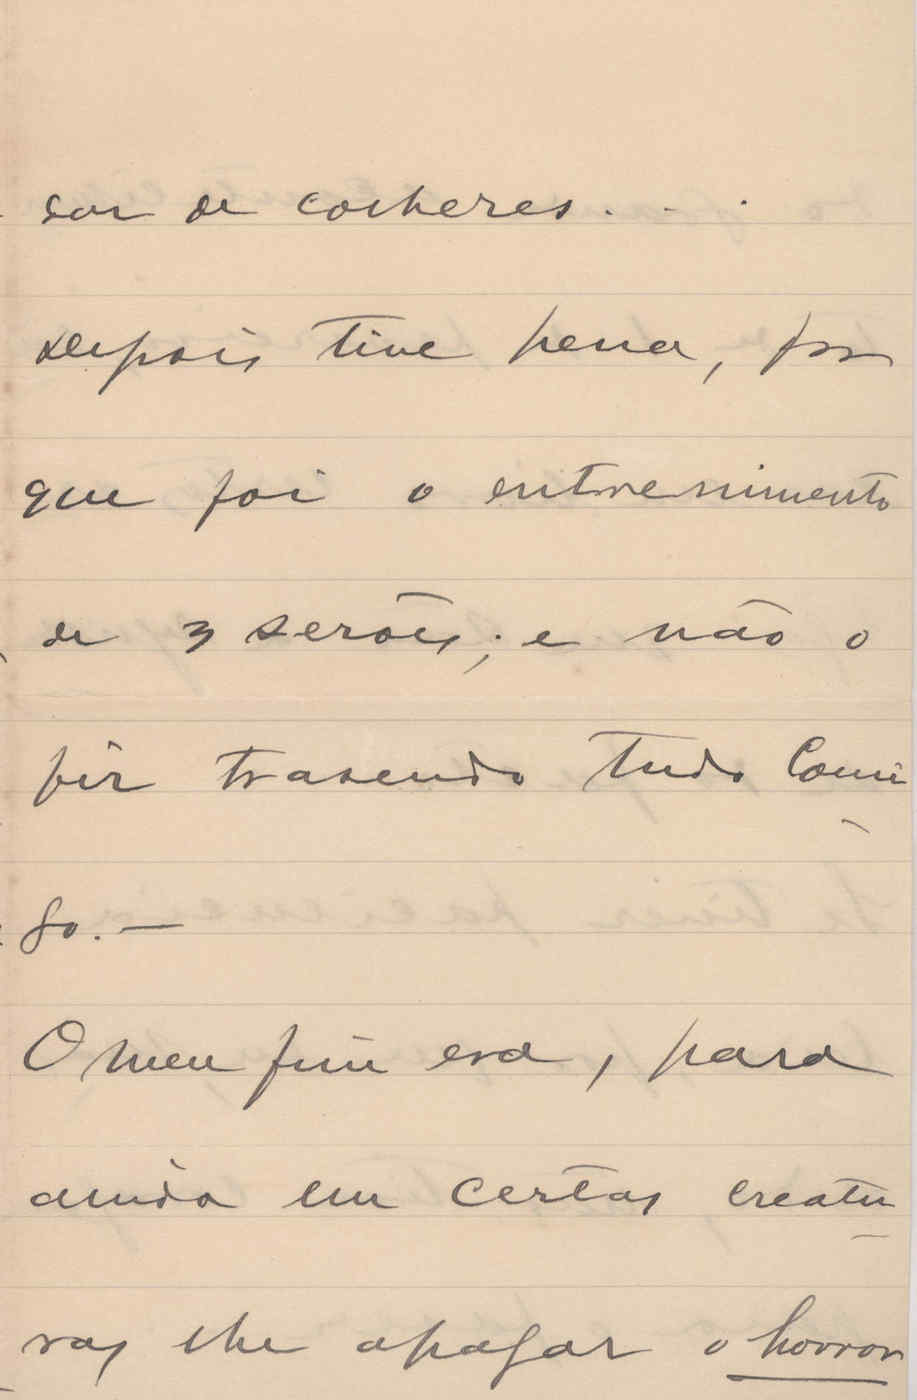 sar de colheres . . .
Depois tive pena, por
que foi o entrenimento
de 3 serões; e não o
fiz trasendo tudo comi
go. —
O meu fim era, para
ainda em certas creatu
ras lhe apagar o horror